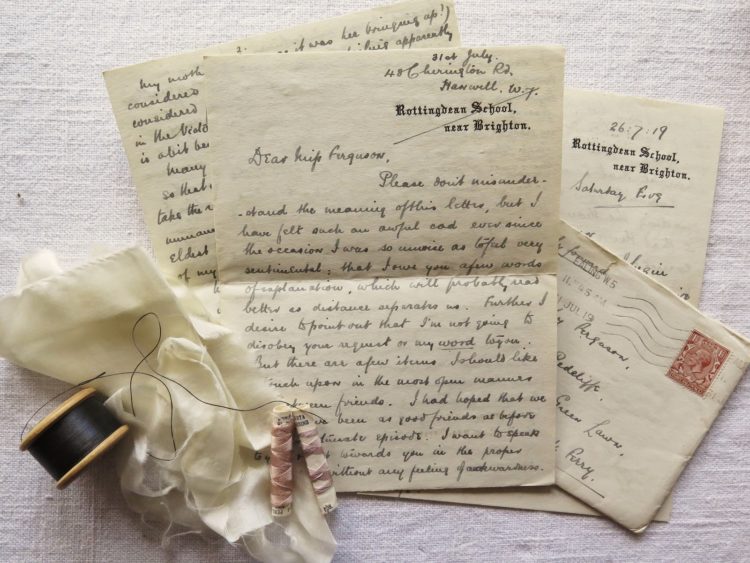 31st July.
40 Cherington Rd.
Hanwell, W.7
Rottingdean School,
near Brighton.
Dear Miss Ferguson,
Please don't misunder-
-stand the meaning of this letter, but I
have felt such an awful cad ever since
the occasion I was so unwise as to feel very
sentimental; that I owe you a few words
of explanation, which will probably read
better as distance separates us. Further I
desire to point out that I'm not going to
disobey your request or my word to you.
But there are a few items I should like
touch upon in the most open manner
friends. I had hoped that we
been as good friends as before
episode. I want to speak
towards you in the proper
without any feeling of awkwardness.
2.
it was her bringing up!)
apparently
My moth
considered
considered
in the Victo
is a bit be
Many
so that
takes the
unmarr
eldest
of my
26.7.19
Rottingdean School,
near Brighton.
Saturday Evg
EALING W.5
11.45 AM
JUL 19
Ferguson,
Redcliffe
Green Lawn,
Ferry.